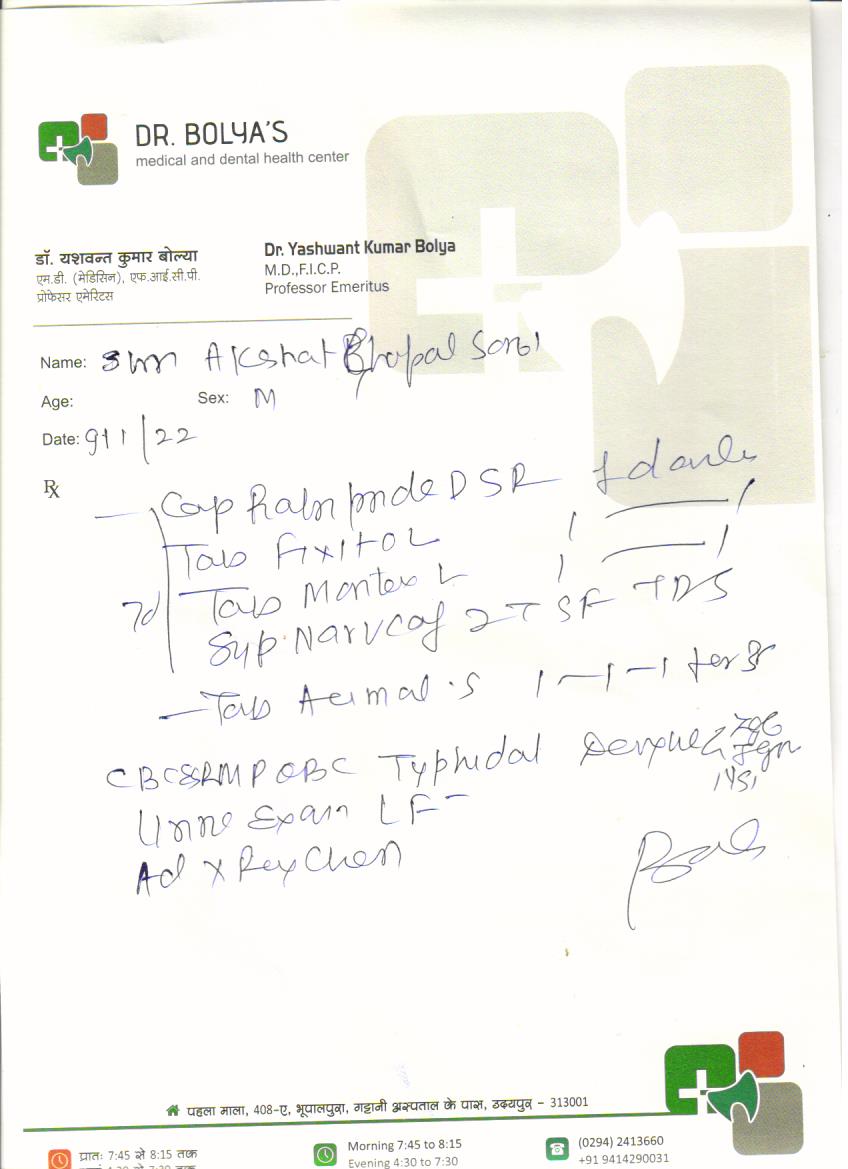 DR. BOLYA'S
medical and dental health center
डॉ. यशवन्त कुमार बोल्या
एम.डी. (मेडिसिन), एफ.आई.सी.पी.
प्रोफेसर एमेरिटस
Dr. Yashwant Kumar Bolya
M.D.,F.I.C.P.
Professor Emeritus
Name: Akshat Bhopal Soni
Age: Sex: M
Date: 9/1/22
Rx
Cap DSR 1 daily
Tab Fixitol 1 1
7d Tab Montex L 1 1
Syp. 2 TSF TDS
Tab 1-1-1 for 3
CBC MP Typhidot IgG
IgM
NS1
Urine Exam LFT
Ad X Ray Chest
पहला माला, 408-ए, भूपालपुरा, गट्टानी अस्पताल के पास, उदयपुर - 313001
प्रातः 7:45 से 8:15 तक
Morning 7:45 to 8:15
Evening 4:30 to 7:30
(0294) 2413660
+91 9414290031